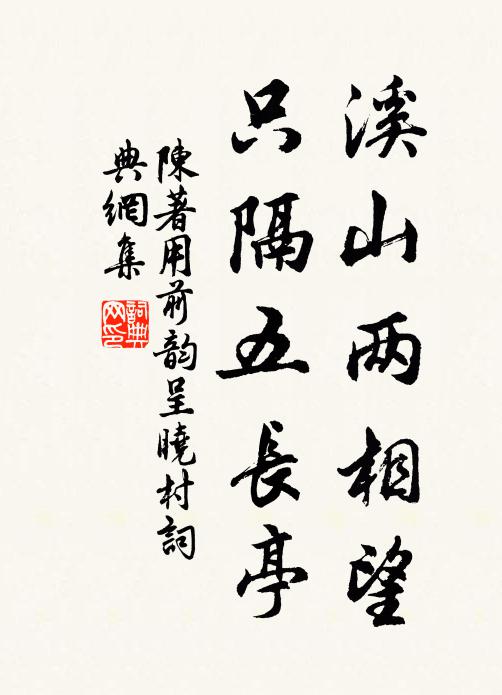 溪山两相望
只隔五長亭
陳著用前韵呈曉村詞
典網集
詞典网印